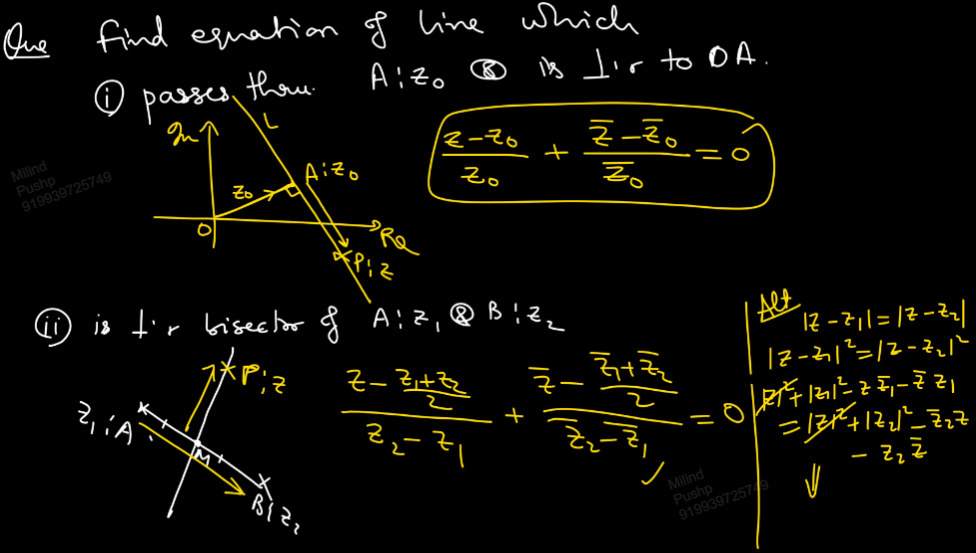 Que find equation of line which
(i) passes thru. A:z₀ & is ⊥'r to OA.
L
Im
A:z₀
z₀
O
Re
P:z
(z-z₀)/z₀ + (z̄-z̄₀)/z̄₀ = 0
Milind
Pushp
919939725749
(ii) is ⊥'r bisector of A:z₁ & B:z₂
P:z
z₁:A
M
B:z₂
(z - (z₁+z₂)/2)/(z₂-z₁) + (z̄ - (z̄₁+z̄₂)/2)/(z̄₂-z̄₁) = 0
Alt
|z-z₁| = |z-z₂|
|z-z₁|² = |z-z₂|²
|z|²+|z₁|²-z z̄₁-z̄ z₁
= |z|²+|z₂|²-z̄₂z
- z₂z̄
⇓
Milind
Pushp
919939725749